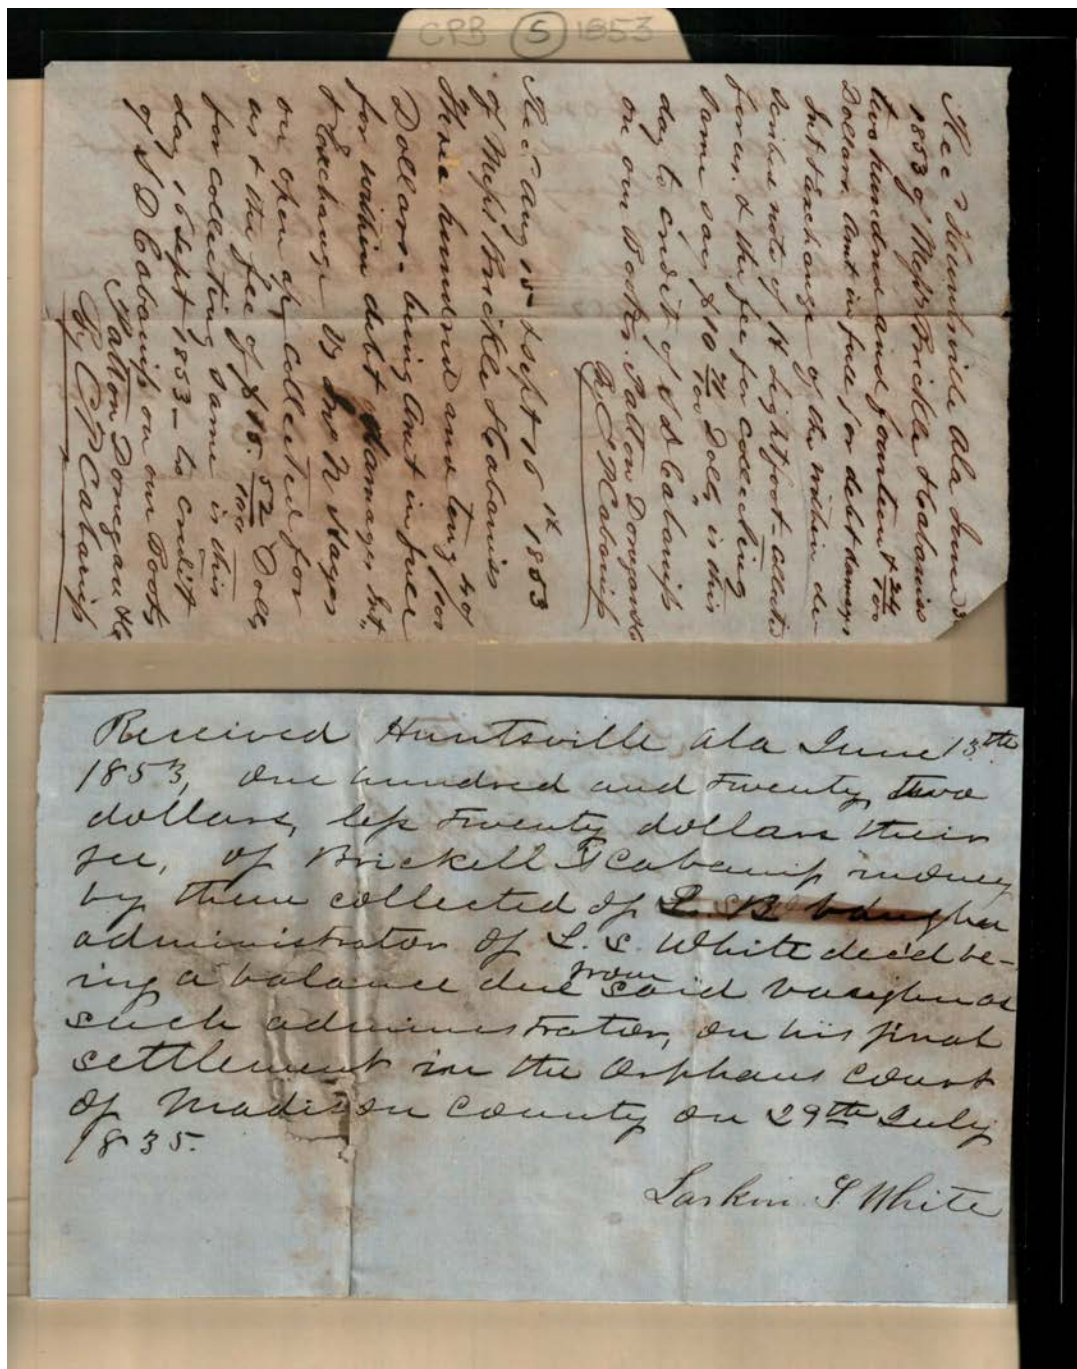 CPB (5) 1853
Rec'd Huntsville Ala June
1853 of Mess Brickle & Cabaniss
two hundred and fourteen & 24/100
Dollars Amt in full for debt damages
Int & exchange of the within de-
scribed note of Lightfoot collected
for us & the fee for collecting
same say $10 /100 Dolls is this
day to credit of S D Cabaniss
on our Books. Patton Donegan & Co
By C P Cabaniss
Rec'd Aug 15 & Sept 16th 1853
of Mess Brickle & Cabaniss
three hundred and ten 40/100
Dollars - being Amt in full
for within debt damages Int
& Exchange Vs Jno N Hayes
on open a/c collected for
us & the fee of $15. 52/100 Dolls
for collecting same is this
day 16 Sept 1853 - to credit
of S D Cabaniss on our Books
Patton Donegan & Co
By C P Cabaniss
Received Huntsville Ala June 13th
1853, One hundred and twenty two
dollars, less twenty dollars their
fee, of Brickell & Cabaniss money
by them collected of L. B. Vaughn
administrator of L. S. White dec'd be-
ing a balance due from said Vaughn as
such administrator, on his final
settlement in the Orphans court
of Madison County on 29th July
1835.
Larkin S White